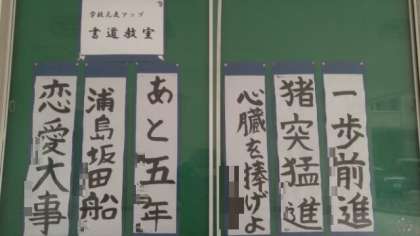 学校元気アップ
書道教室
一歩前進
猪突猛進
心臓を捧げよ
あと五年
浦島坂田船
恋愛大事